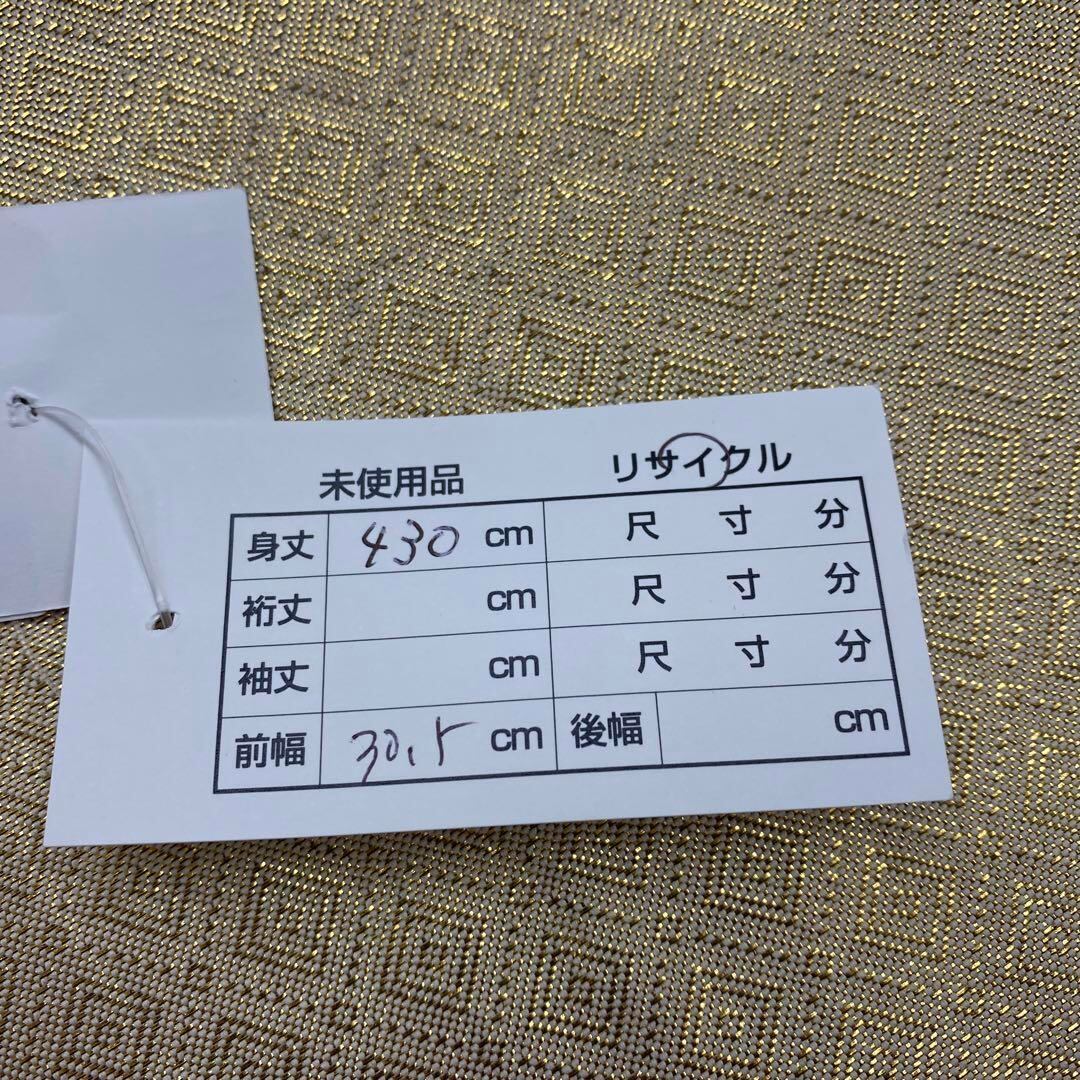 未使用品 リサイクル
身丈 430 cm 尺 寸 分
裄丈 cm 尺 寸 分
袖丈 cm 尺 寸 分
前幅 30.5 cm 後幅 cm